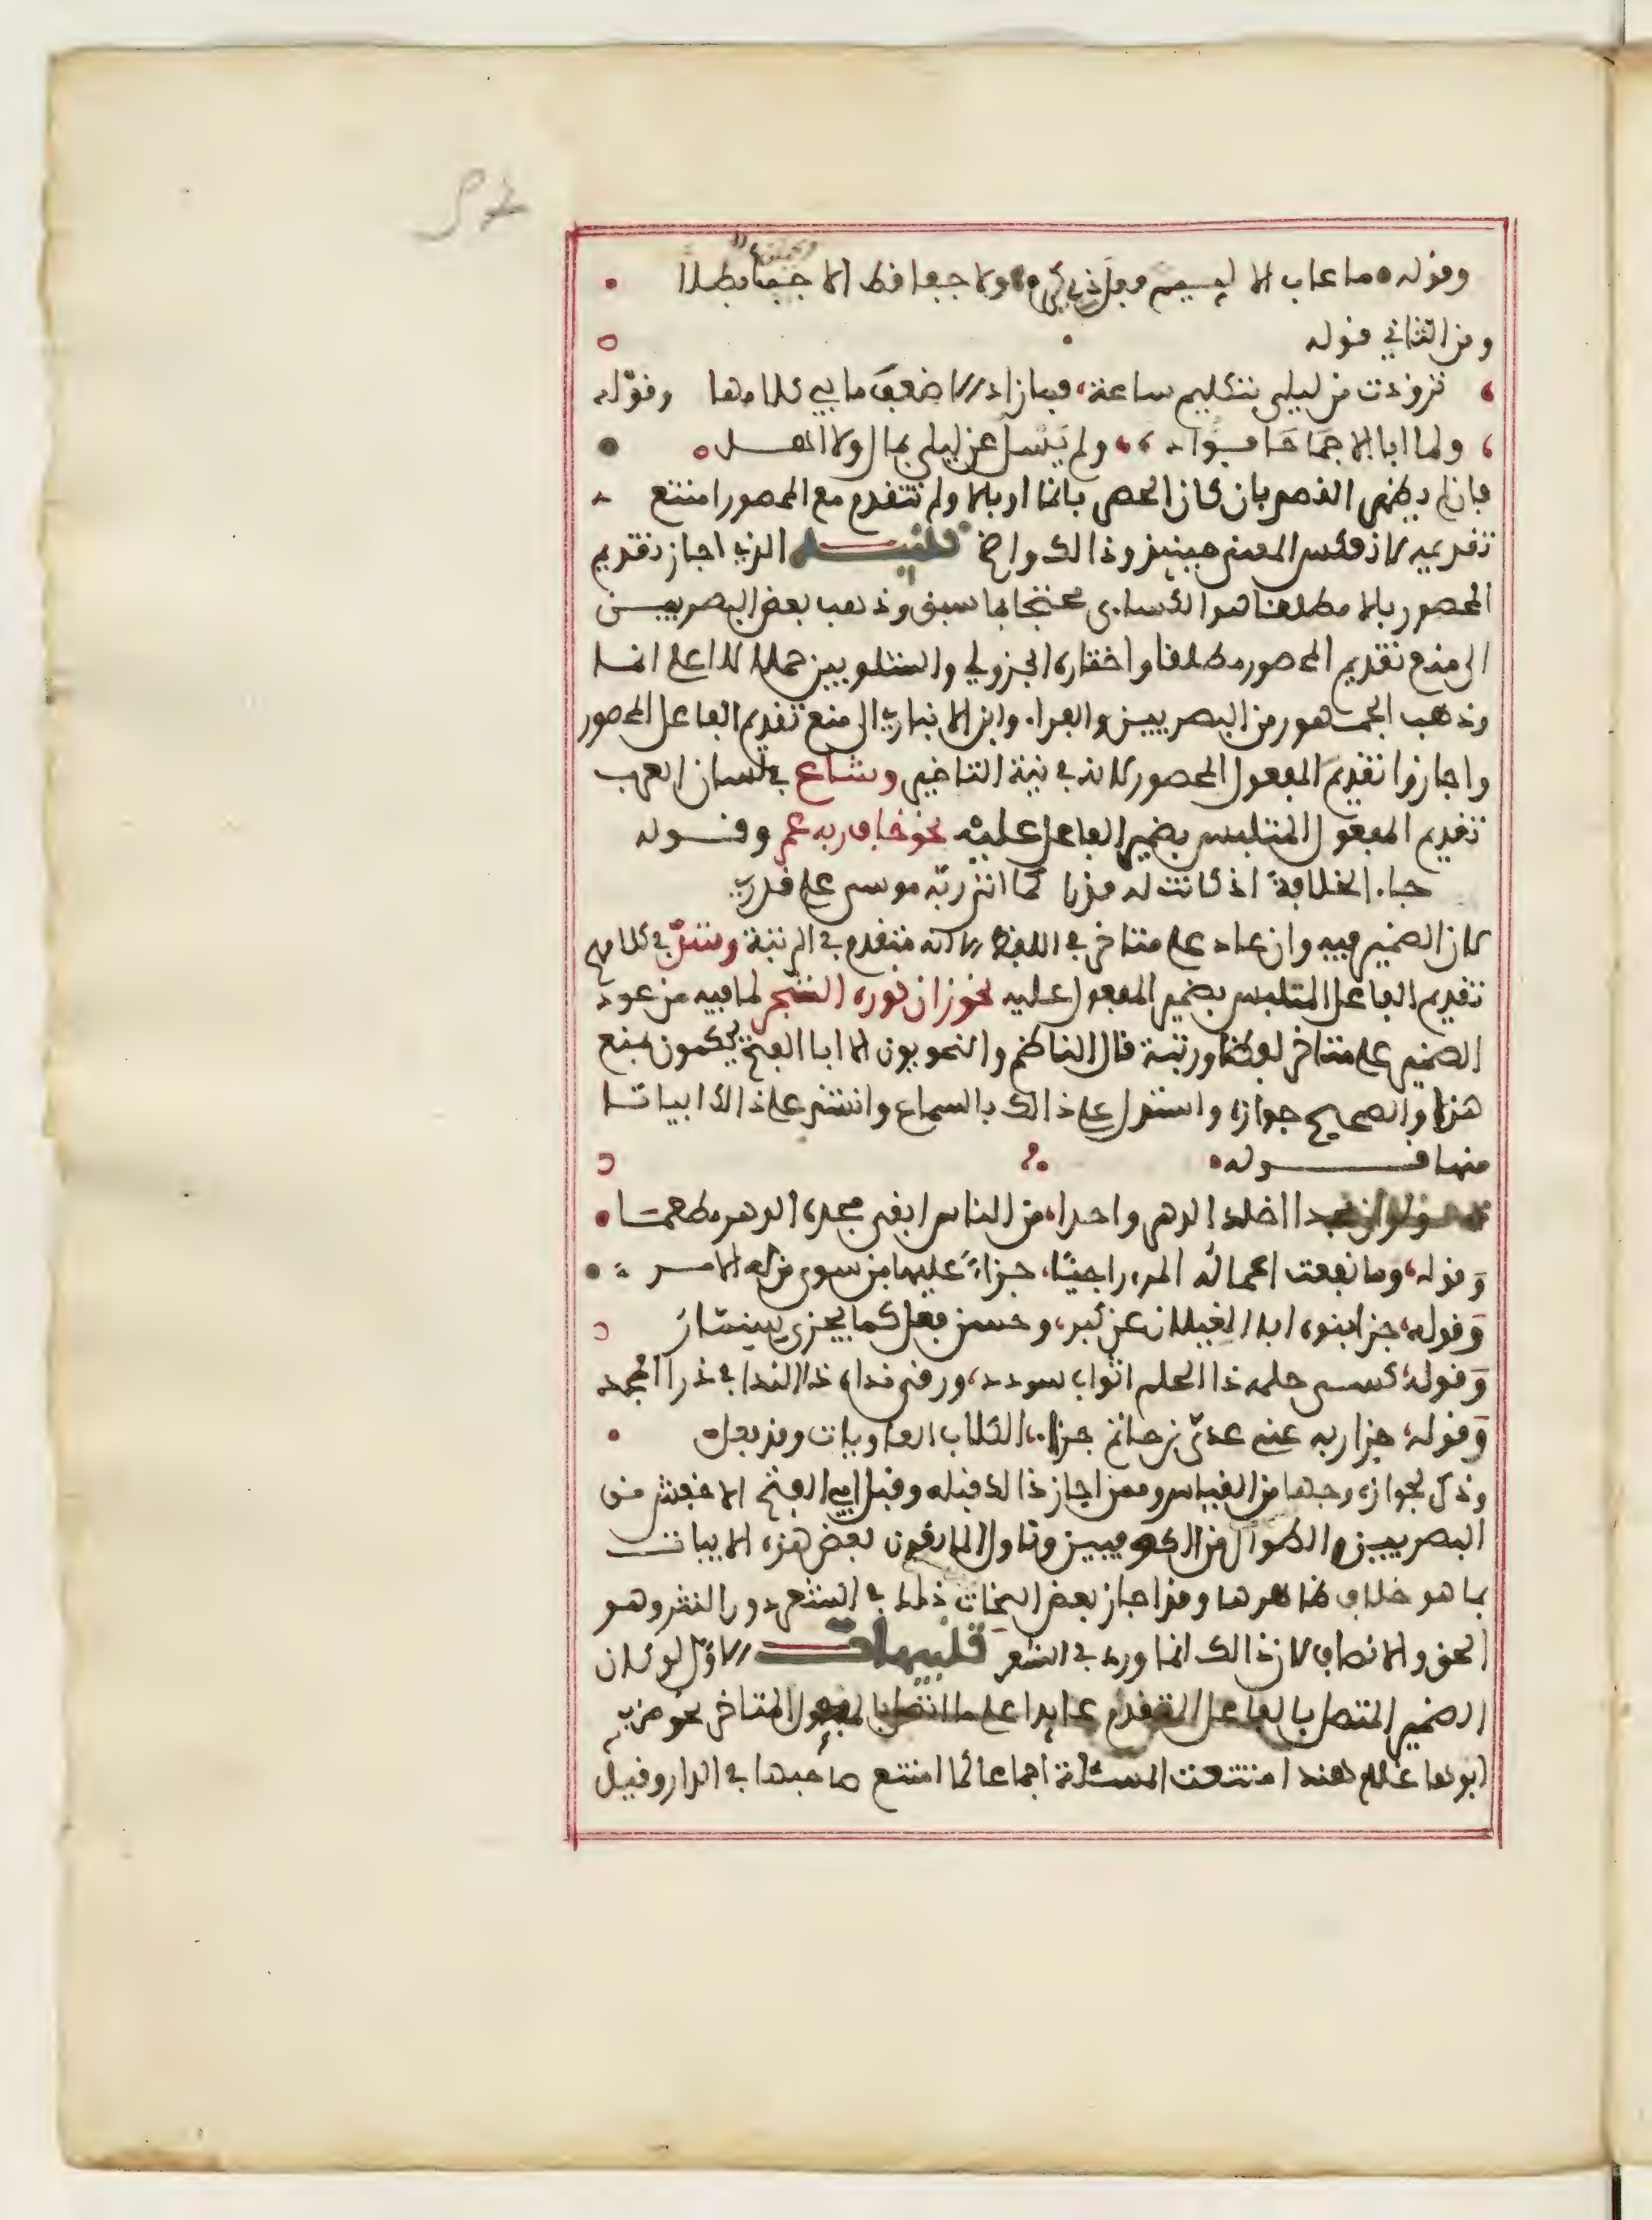 وقوله ما عاب الا لييم فعل ذي كرم ولا جفا قط الا جبأ بطلا
ومن الثاني قوله
تزودت من ليلى بتكليم ساعة فما زاد الا ضعف ما بي كلامها وقوله
ولما ابا الا جماحا فؤاده ولم يسل عن ليلى بمال ولا اهل
فان لم يظهر القصد بان كان الحصر بانما او بالا ولم تتقدم مع المحصور امتنع
تقديمه لان عكس المعنى حينيذ وذالك واضح تنبيه الذي اجاز تقديم
المحصور بالا مطلقا هو الكساءي محتجا بما سبق وذهب بعض البصريين
الى منع تقديم المحصور مطلقا واختاره الجزولي والشلوبين حملا لالا على انما
وذهب الجمهور من البصريين والفراء وابن الانباري الى منع تقديم الفاعل المحصور
واجازوا تقديم المفعول المحصور لانه في نية التاخير وشاع في لسان العرب
تقديم المفعول المتلبس بضمير الفاعل عليه نحو خاف ربه عمر وقوله
جاء الخلافة اذ كانت له قدرا كما اتى ربه موسى على قدر
لان الضمير فيه وان عاد على متاخر في اللفظ الا انه متقدم في الرتبة وشذ في كلامهم
تقديم الفاعل المتلبس بضمير المفعول عليه نحو زان نوره الشجر لما فيه من عود
الضمير على متاخر لفظا ورتبة قال الناظم والنحويون الا ابا الفتح يحكمون بمنع
هذا والصحيح جوازه واستدل على ذالك بالسماع وانشد على ذالك ابياتا
منها قوله
ولو ان مجدا اخلد الدهر واحدا من الناس ابقى مجده الدهر مطعما
وقوله وما نفعت اعماله المرء راجيا جزاء عليها من سوى من له الامر
وقوله جزا بنوه ابا الغيلان عن كبر وحسن فعل كما يجزى سنمار
وقوله كسى حلمه ذا الحلم اثواب سودد ورقى نداه ذا الندا في ذرا المجد
وقوله جزا ربه عني عدي بن حاتم جزاء الكلاب العاويات وقد فعل
وذكر لجوازه وجها من القياس وممن اجاز ذالك قبله وقبل ابي الفتح الاخفش من
البصريين والطوال من الكوفيين وتاول المانعون بعض هذه الابيات
بما هو خلاف ظاهرها وقد اجاز بعض النحات ذلك في الشعر دون النثر وهو
الحق والانصاف لان ذالك انما ورد في الشعر تنبيهات الاول لو كان
الضمير المتصل بالفاعل المتقدم عايدا على ما اتصل بالمفعول المتاخر نحو ضرب
ابوها غلام هند امتنعت المسئلة اجماعا كما امتنع صاحبها في الدار وقيل